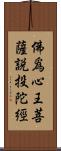 佛爲心王菩
薩説投陀經